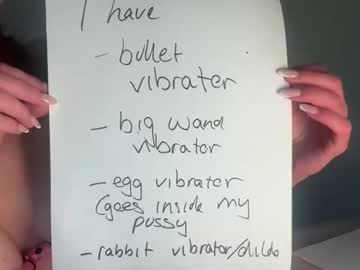 I have
- bullet
vibrater
- big wand
vibrator
- egg vibrater
(goes inside my
pussy
- rabbit vibrator/dildo